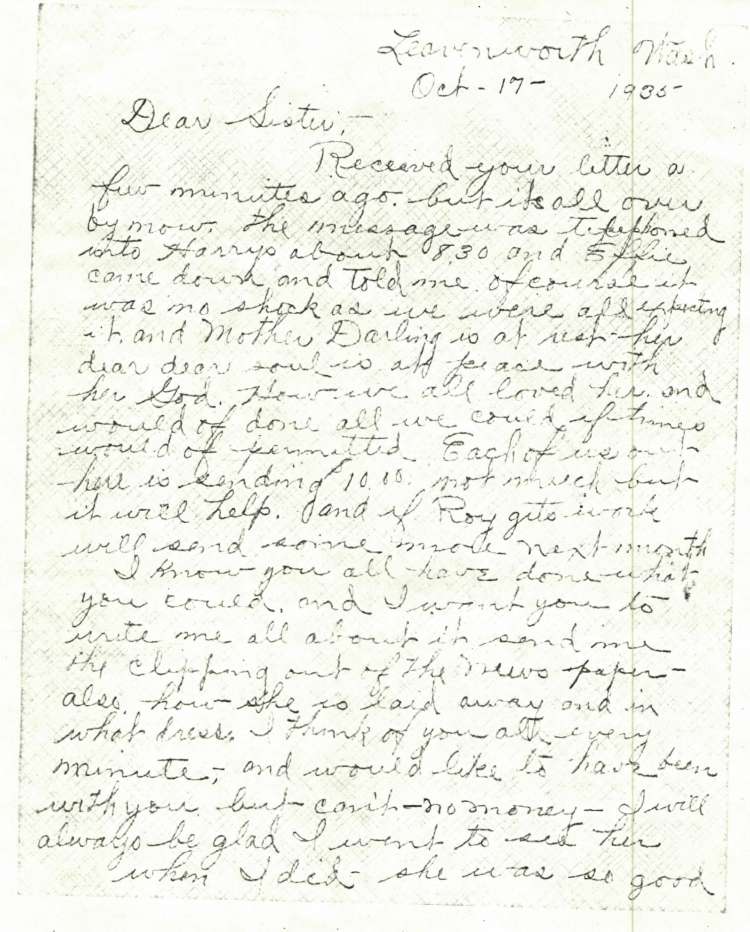 Leavenworth Wash.
Oct - 17 - 1935
Dear Sister, -
Received your letter a
few minutes ago. but its all over
by now. The message was telephoned
into Harrys about 8.30 and Effie
came down and told me. of course it
was no shock as we were all expecting
it. and Mother Darling is at rest - her
dear dear soul is at peace with
her God. How we all loved her. and
would of done all we could if times
would of permitted. Each of us out
here is sending 10.00. not much but
it will help. and if Roy gets work
will send some more next month
I know you all have done what
you could. and I want you to
write me all about it send me
the clipping out of the News paper -
also how she is laid away and in
what dress. I think of you all every
minute, - and would like to have been
with you but can't - no money - I will
always be glad I went to see her
when I did - she was so good